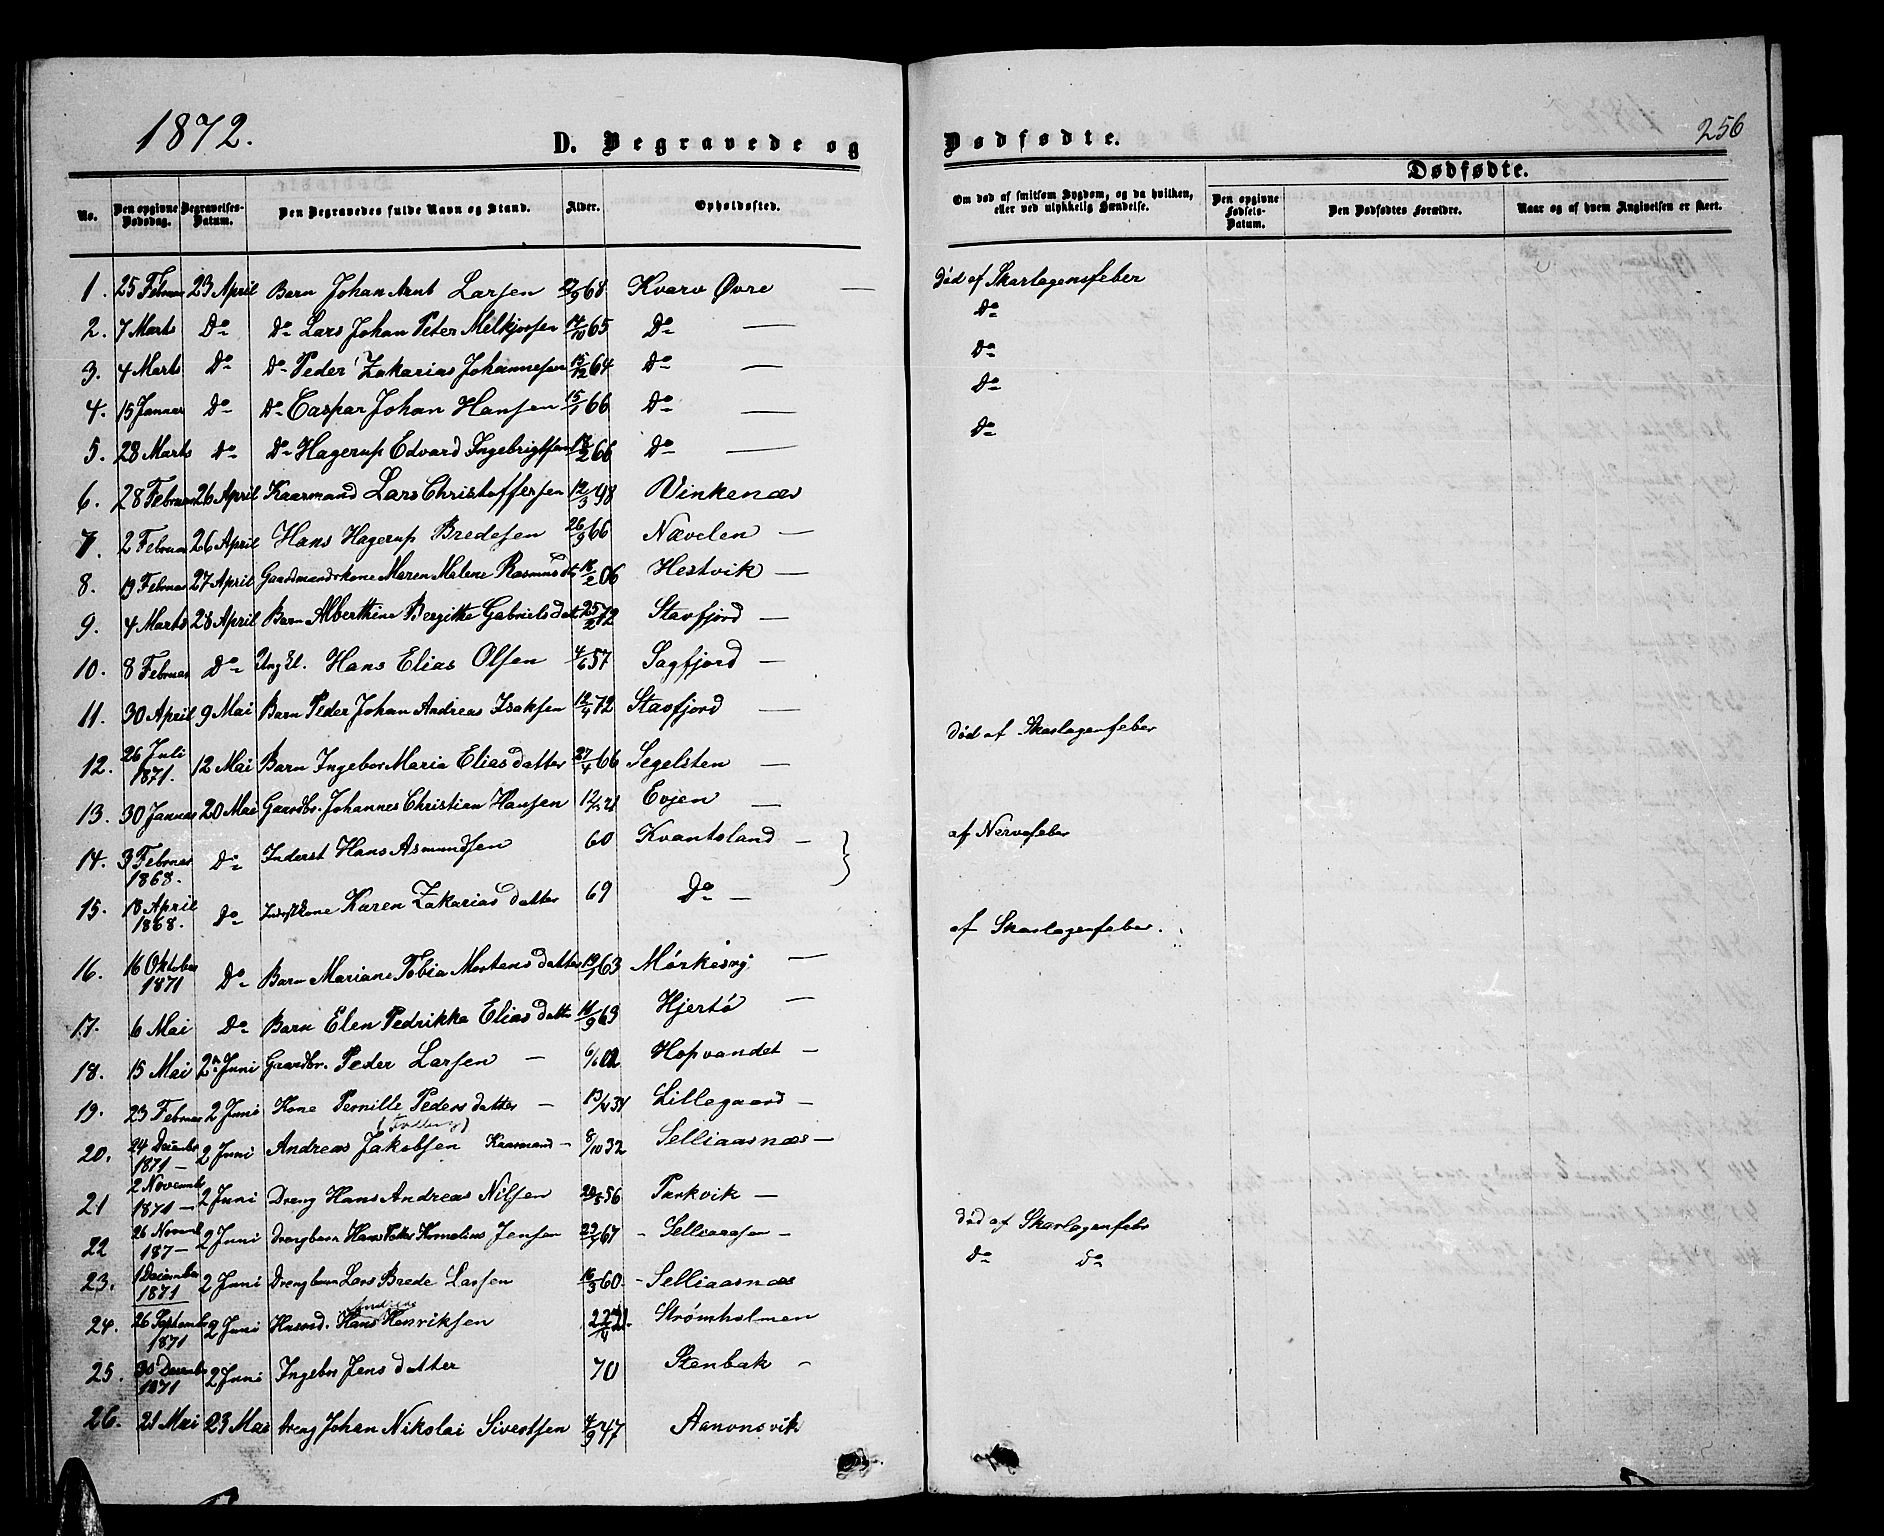 1872.
D. Begravede og
Dødfødte.
256
No.
Den opgivne Dødsdag.
Begravelses-Datum.
Den Begravedes fulde Navn og Stand.
Alder.
Opholdssted.
Om død af smitsom Sygdom, og da hvilken, eller ved ulykkelig Hændelse.
Dødfødte.
Den opgivne Fødsels-Datum.
Den Dødfødtes Forældre.
Naar og af hvem Angivelsen er skeet.
1. 25 Februar 23 April Barn Johan Arnt Larsen 68 Kvarv Øvre — død af Skarlagensfeber
2. 7 Marts Do Do Lars Johan Peter Melkjorsen 17/10 65 Do — Do
3. 4 Marts Do Do Peder Zakarias Johannesen 15/12 64 Do — Do
4. 15 Januar Do Do Caspar Johan Hansen 15/1 66 Do — Do
5. 28 Marts Do Do Hagerup Edvard Ingebrigtsen 66 Do — Do
6. 28 Februar 26 April Kaarmand Lars Christoffersen 12/3 98 Vinkenæs
7. 2 Februar 26 April Hans Hagerup Bredesen 26/9 66 Nævelen —
8. 19 Februar 27 April Gaardmandskone Maren Malene Rasmusdt 18/2 06 Hestvik —
9. 4 Marts 28 April Barn Alberthine Bergitte Gabrielsdat 25/2 72 Stavfjord —
10. 8 Februar Do Ung El. Hans Elias Olsen 4/6 57 Sagfjord —
11. 30 April 9 Mai Barn Peder Johan Andreas Isaksen 12/4 72 Stavfjord —
12. 26 Juli 1871. 12 Mai Barn Ingebor Maria Eliasdatter 27/4 66 Segelsten — død af Skarlagenfeber
13. 30 Januar 20 Mai Gaardbr. Johannes Christian Hansen 21 Evjen —
14. 3 Februar 1868. Do Inderst Hans Asmundsen 60 Kvantoland — af Nervefeber
15. 18 April 1868. Do Inderstkone Karen Zakariasdatter 69 Do —
16. 16 Oktober 1871 Do Barn Mariane Tobia Mortensdatter 63 Mørkesvig — af Skarlagenfeber.
17. 6 Mai Do Barn Elen Pedrikka Eliasdatter 16/9 63 Hjertø —
18. 15 Mai 2n Juni Gaardbr. Peder Larsen — 6/6 02 Hopvandet —
19. 23 Februar 2 Juni Kone Pernille Pedersdatter — 31 Lillegaard —
20. 24 Decembr 1871 — 2 Juni Andreas Jakobsen Kaarmand — 8/10 32 Selliaasnæs —
21 2 Novembr 1871 — 2 Juni Dreng Hans Andreas Nilsen 56 Parkvik —
22 26 Novembr 187— 2 Juni Drengbarn Hans Peter Kornelius Jensen 67 — Selliaasen — død af Skarlagenfeber
23. 1 December 1871 2 Juni Drengbarn Lars Brede Larsen 16/3 60 — Selliaasnæs Do Do
24. 26 September 1871 2 Juni Husmd. Hans Andreas Henriksen 21 Strømholmen
25. 30 Decembr 1871 2 Juni Ingebor Jensdatter 70 Stenbak —
26. 21 Mai 23 Mai dreng Johan Nikolai Sivertsen 4/9 47 Aanonsvik